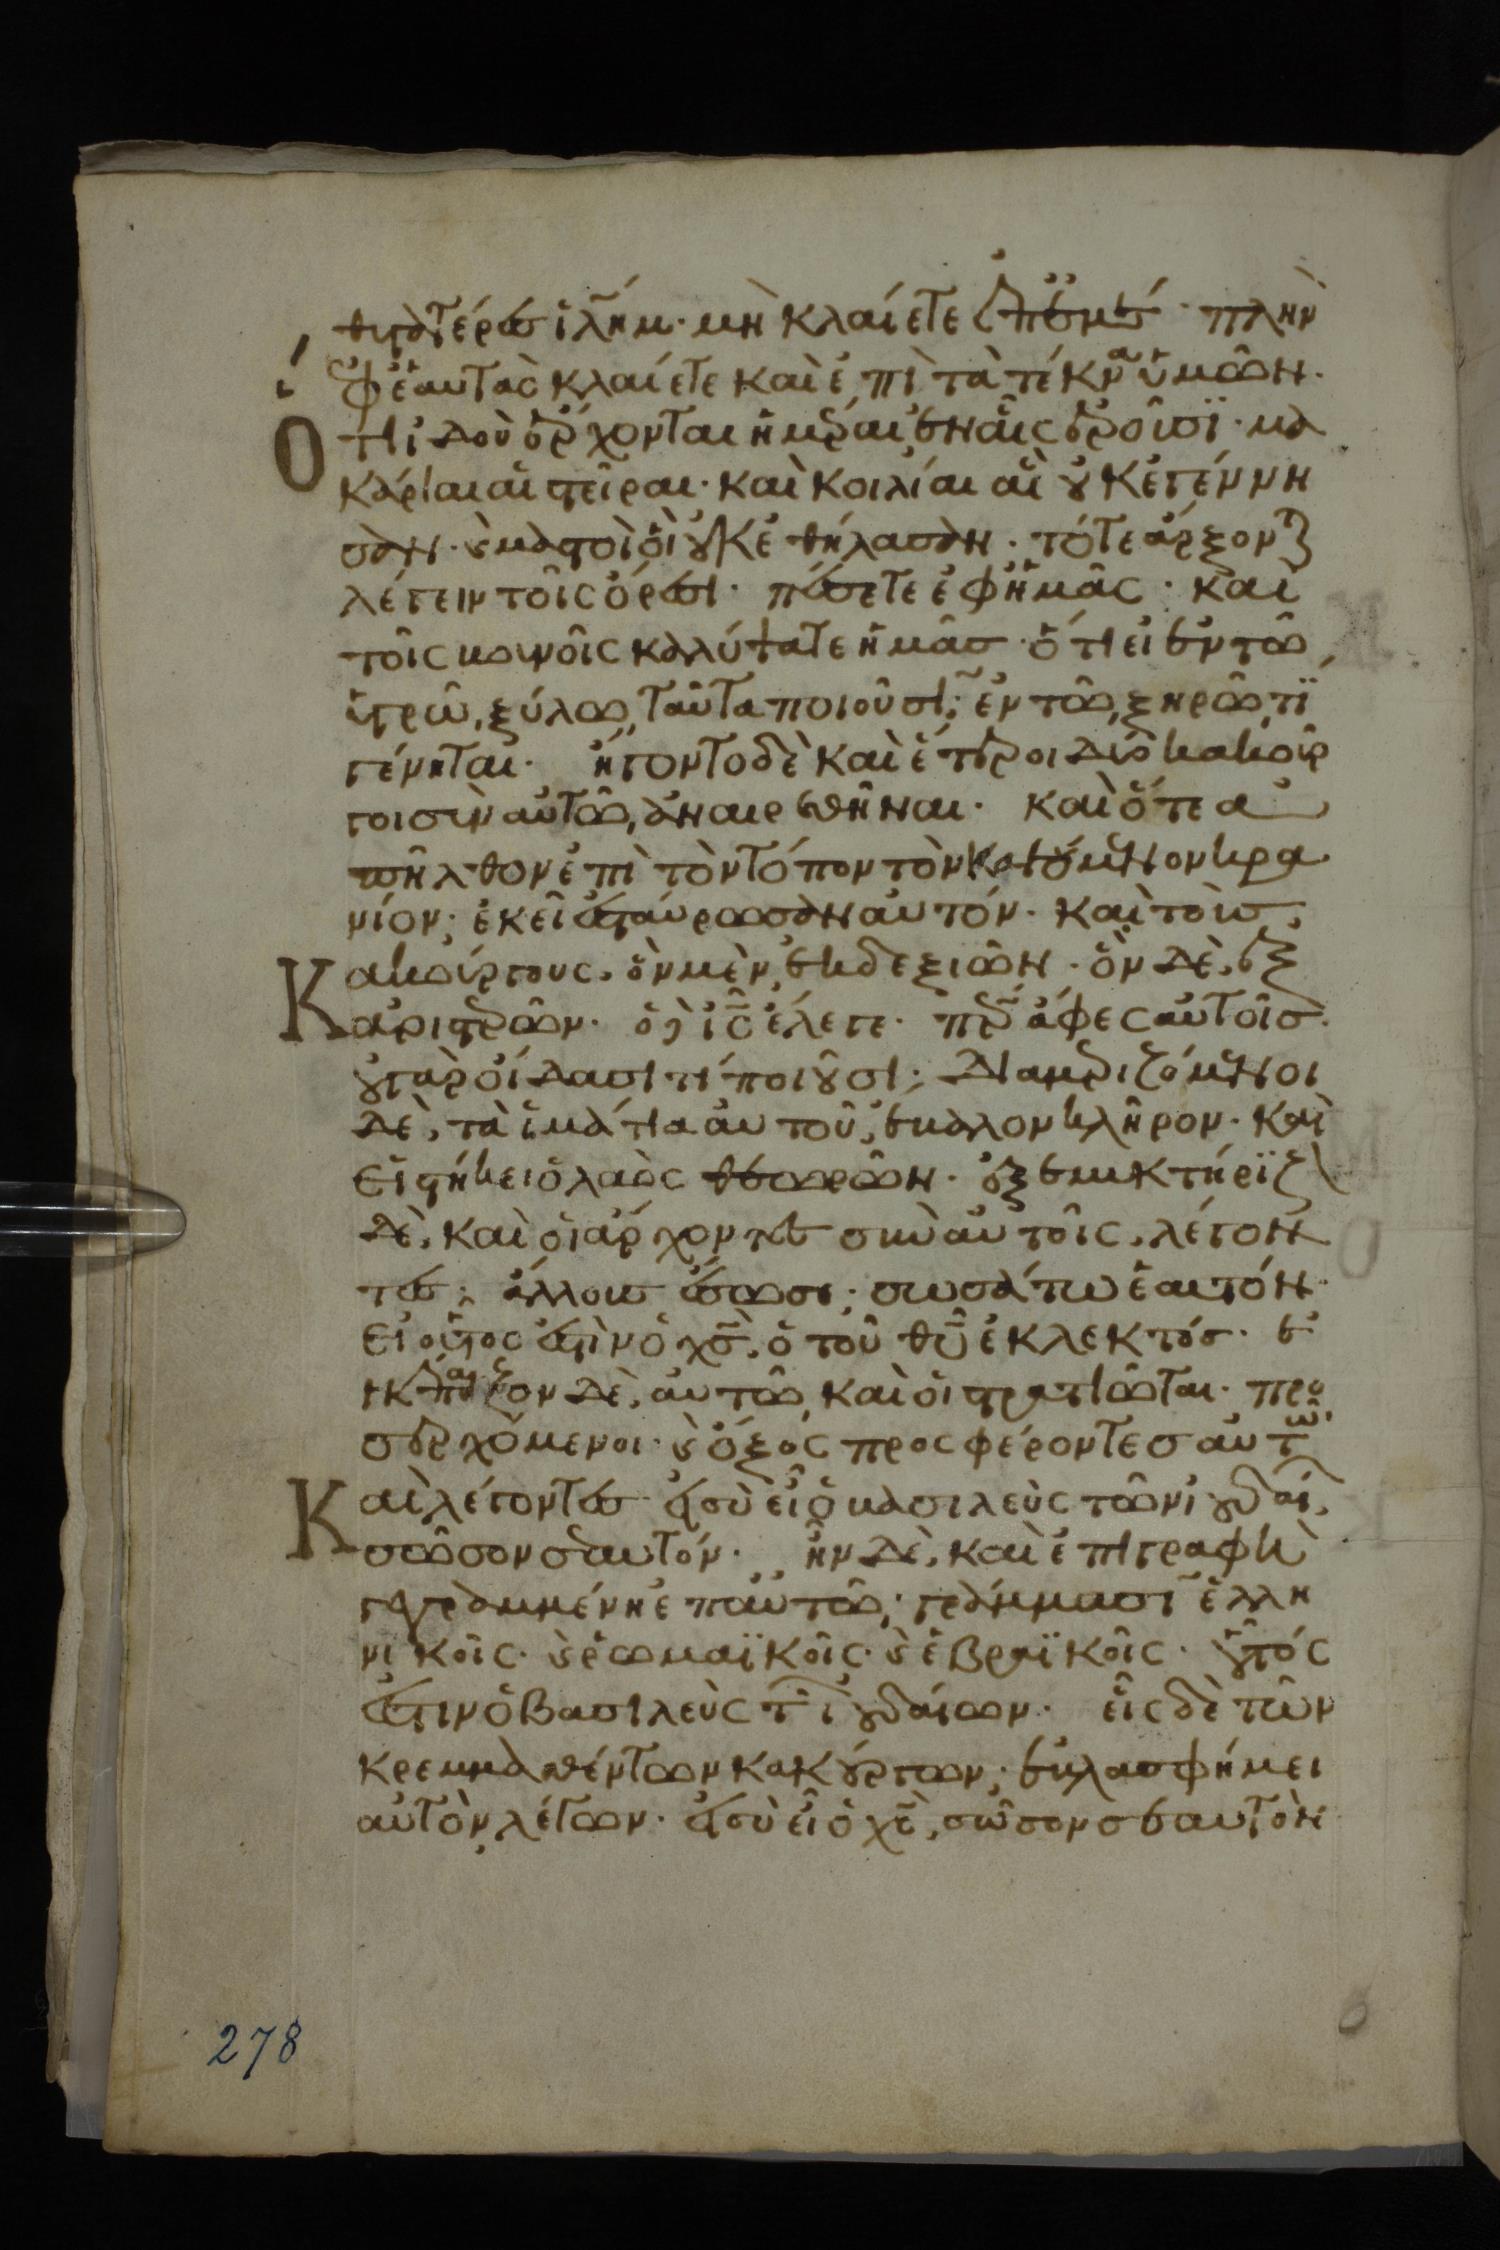 θυγατέρες ἰλῆμ· μὴ κλαίετε ἐπ' ἐμέ· πλὴν
ἐφ' ἑαυτὰς κλαίετε καὶ ἐπὶ τὰ τέκνα ὑμῶν·
Ὅτι ἰδοὺ ἔρχονται ἡμέραι ἐν αἷς ἐροῦσϊ· μα
κάριαι αἱ στεῖραι· καὶ κοιλίαι αἳ οὐκ ἐγέννη
σαν· καὶ μαστοὶ οἳ οὐκ ἐθήλασαν· τότε ἄρξονται
λέγειν τοῖς ὄρεσι· πέσετε ἐφ' ἡμᾶς· καὶ
τοῖς βουνοῖς καλύψατε ἡμᾶς· ὅτι εἰ ἐν τῶ
ὑγρῶ ξύλω ταῦτα ποιοῦσι; ἐν τῶ ξηρῶ τΐ
γένηται· ἤγοντο δὲ καὶ ἕτεροι δύο κακοῦρ
γοι σὺν αὐτῶ ἀναιρεθῆναι· καὶ ὅτε ἀ
πῆλθον ἐπὶ τὸν τόπον τὸν καλούμενον κρα
νίον· ἐκεῖ ἐσταύρωσαν αὐτόν· καὶ τοὺς
Κακούργους, ὃν μὲν ἐκ δεξιῶν· ὃν δὲ, ἐξ
ἀριστερῶν· ὁ δὲ ἰς ἔλεγε· περ ἄφες αὐτοῖς·
οὐ γὰρ οἴδασι τί ποιοῦσι; Διαμεριζόμενοι
δὲ, τὰ ἱμάτια αὐτοῦ, ἔβαλον κλῆρον· καὶ
εἱστήκει ὁ λαὸς θεωρῶν· ἐξεμυκτήρϊζον
δὲ, καὶ οἱ ἄρχοντες σὺν αὐτοῖς, λέγον
τες· ἄλλους ἔσωσε· σωσάτω ἑαυτόν·
εἰ οὗτός ἐστιν ὁ χς, ὁ τοῦ θυ ἐκλεκτός· ἐ
νέπαιζον δὲ, αὐτῶ καὶ οἱ στρατιῶται· προ
σερχόμενοι· καὶ ὄξος προσφέροντες αὐτῶ·
Καὶ λέγοντες· εἰ σὺ εἶ ὁ βασιλεὺς τῶν ἰουδαί,
σῶσον σεαυτόν· ἦν δὲ, καὶ ἐπιγραφὴ
γεγραμμένη ἐπ' αὐτῶ· γράμμασι ἑλλη
νικοῖς· καὶ ῥωμαϊκοῖς· καὶ ἑβραϊκοῖς· οὗτός
ἐστιν ὁ βασιλεὺς τ ἰουδαίων· εἷς δὲ τῶν
κρεμμασθέντων κακούργων· ἐβλασφήμει
αὐτὸν λέγων· εἰ σὺ εἶ ὁ χς, σῶσον σεαυτὸν
278